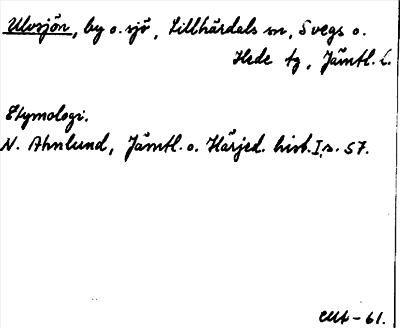 Ulvsjön, by o. sjö, Lillhärdals sn, Svegs o.
Hede tg, Jämtl. l.
Etymologi.
N. Ahnlund, Jämtl. o. Härjed. hist. I, s. 57.
-61.